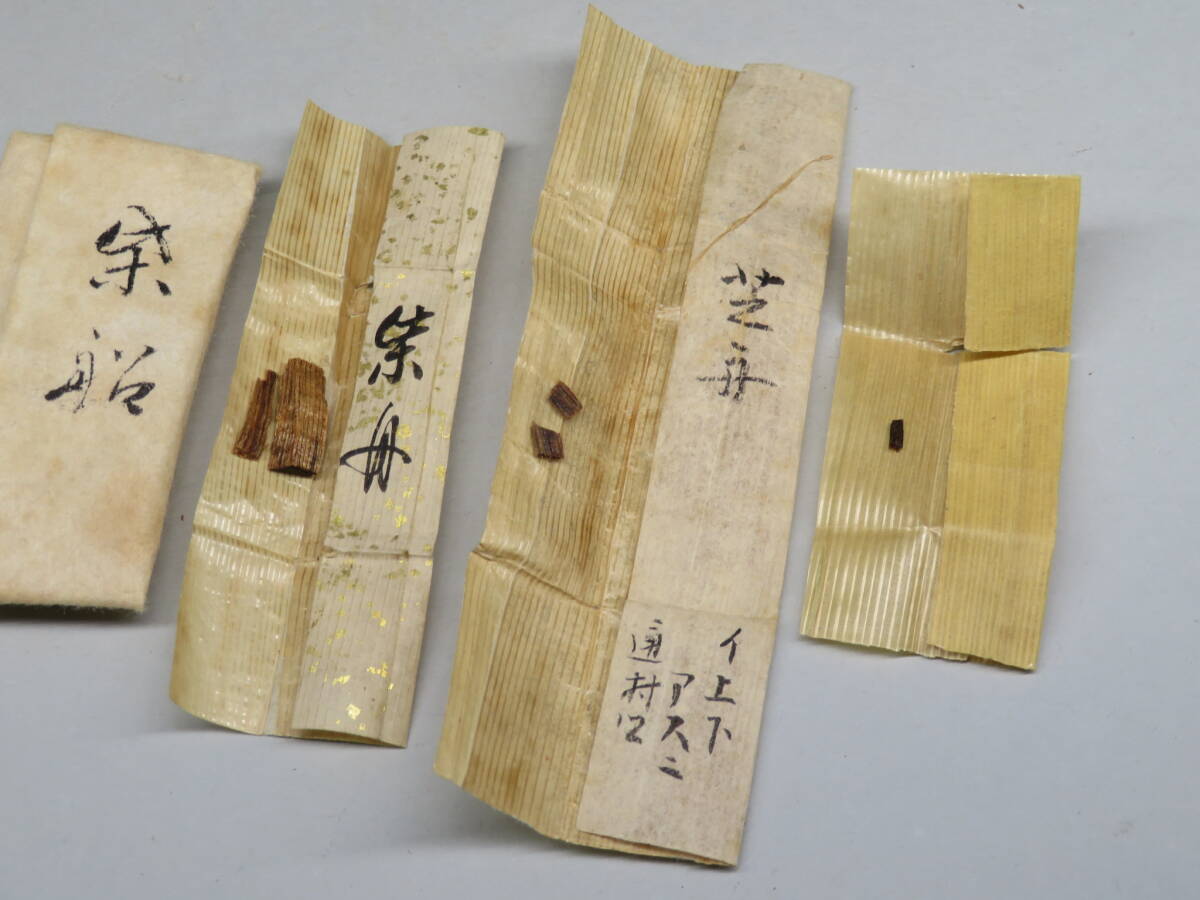 柴船
柴舟
芝舟
イ上下
アスニ
通村